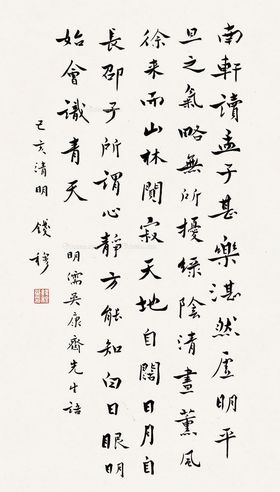 南軒讀孟子甚樂湛然虛明平
旦之氣略無所擾綠陰清晝薰風
徐来而山林闃寂天地自闊日月自
長邵子所謂心靜方能知白日眼明
始會識青天
明儒吳康齋先生語
己亥清明 錢穆